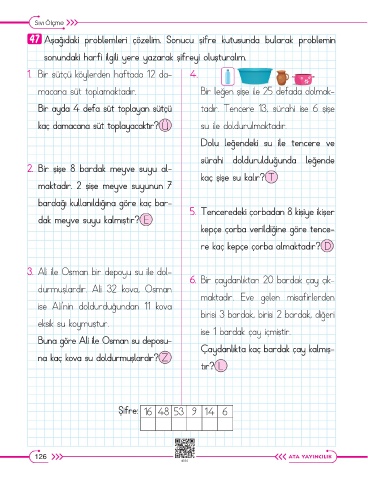 Sıvı Ölçme
47 Aşağıdaki problemleri çözelim. Sonucu şifre kutusunda bularak problemin
sonundaki harfi ilgili yere yazarak şifreyi oluşturalım.
1. Bir sütçü köylerden haftada 12 da-
macana süt toplamaktadır.
Bir ayda 4 defa süt toplayan sütçü
kaç damacana süt toplayacaktır? Ü
2. Bir şişe 8 bardak meyve suyu al-
maktadır. 2 şişe meyve suyunun 7
bardağı kullanıldığına göre kaç bar-
dak meyve suyu kalmıştır? E
3. Ali ile Osman bir depoyu su ile dol-
durmuşlardır. Ali 32 kova, Osman
ise Ali'nin doldurduğundan 11 kova
eksik su koymuştur.
Buna göre Ali ile Osman su deposu-
na kaç kova su doldurmuşlardır? Z
4.
Bir leğen şişe ile 25 defada dolmak-
tadır. Tencere 13, sürahi ise 6 şişe
su ile doldurulmaktadır.
Dolu leğendeki su ile tencere ve
sürahi doldurulduğunda leğende
kaç şişe su kalır? T
5. Tenceredeki çorbadan 8 kişiye ikişer
kepçe çorba verildiğine göre tence-
re kaç kepçe çorba almaktadır? D
6. Bir çaydanlıktan 20 bardak çay çık-
maktadır. Eve gelen misafirlerden
birisi 3 bardak, birisi 2 bardak, diğeri
ise 1 bardak çay içmiştir.
Çaydanlıkta kaç bardak çay kalmış-
tır? L
Şifre: 16 48 53 9 14 6
126
ATA YAYINCILIK